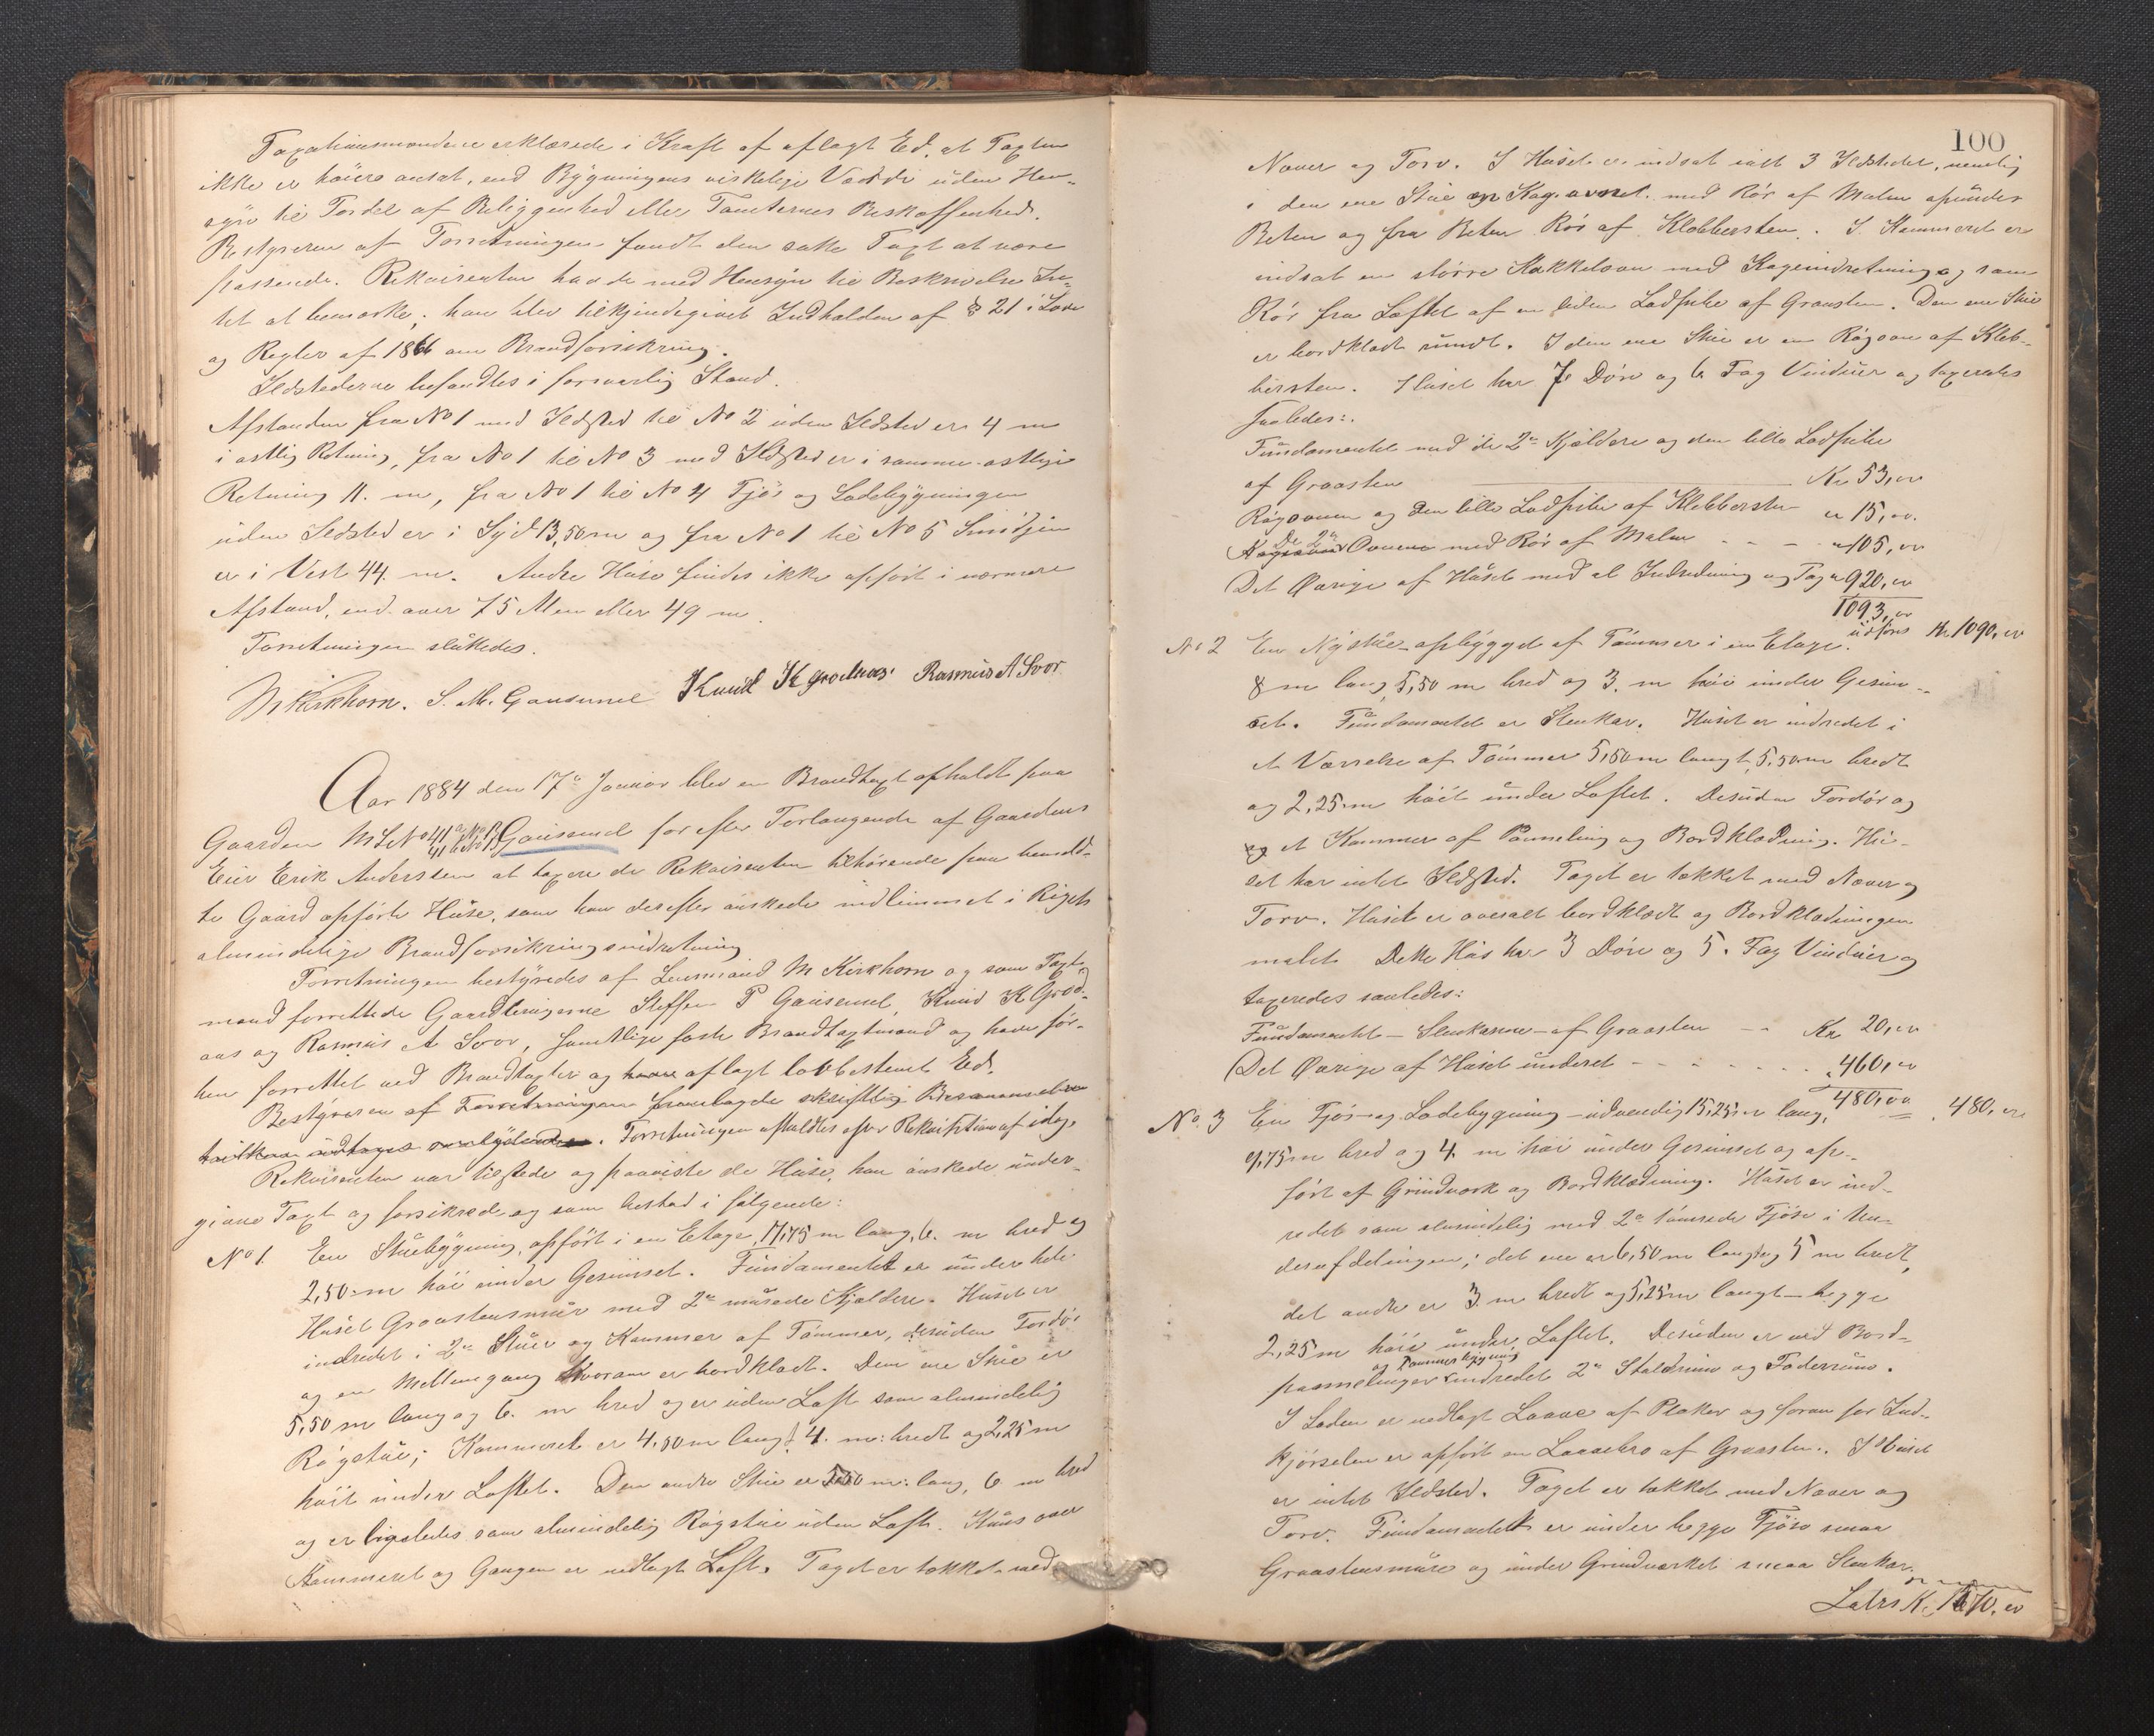 Taxationsmændene erklærede i Kraft af aflagt Ed, at Taxten
ikke er høiere ansat, end Bygningens virkelige Værdi uden Hen-
syn til Fordel af Beliggenhed eller Tomternes Beskaffenhed.
Bestyreren af Forretningen fandt den satte Taxt at være
passende. Rekvirenten havde med Hensyn til Beskrivelsen In-
tet at bemærke; han blev tilkjendegivet Indholden af § 21 i Lov
og Regler af 1866 om Brandforsikring.
Ildstederne befandtes i forsvarlig Stand.
Afstanden fra No 1 med Ildsted til No 2 uden Ildsted er 4 m
i østlig Retning, fra No 1 til No 3 med Ildsted er i samme østlige
Retning 11. m, fra No 1 til No 4 Fjøs og Ladebygningen
uden Ildsted er i Syd 13,50 m og fra No 1 til No 5 Smidjen
er i Vest 44. m. Andre Huse findes ikke opført i nærmere
Afstand, end over 75 Alen eller 49 m.
Forretningen sluttedes.
M Kirkhorn. S. M. Gausemel Knud K Grodaas. Rasmus A Svor
Aar 1884 den 17de Januar blev en Brandtaxt afholdt paa
Gaarden M L No 41 Gausemel for efter Forlangende af Gaardens
Eier Erik Andersen at taxere de Rekvirenten tilhørende paa bemeld-
te Gaard opførte Huse, som han derefter ønskede indlemmet i Rigets
almindelige Brandforsikringsindretning
Forretningen bestyredes af Lensmand M Kirkhorn og som Taxt-
mænd forrettede Gaardbrugerne Steffen P Gausemel, Knud K Grod-
aas og Rasmus A Svor, samtlige faste Brandtaxtmænd og have før-
hen forrettet ved Brandtaxter og have aflagt lovbestemt Ed.
Bestyreren af Forretningen fremlagde skriftlig
hvilken indtages saalydende. Forretningen afholdtes efter Rekvisition af idag.
Rekvirenten var tilstede og paaviste de Huse, han ønskede under-
givne Taxt og forsikrede og som bestod i følgende:
No 1. En Stuebygning, opført i en Etage, 17,75 m lang, 6. m bred og
2,50 m høi under Gesimset. Fundamentet er under hele
Huset Graastensmur med 2de murede Kjældere. Huset er
indredet i 2de Stuer og Kammer af Tømmer, desuden Fordør
og en Mellemgang hvoraf er bordklædt. Den ene Stue er
5,50 m lang og 6. m bred og er uden Loft som almindelig
Røgstue; Kammeret er 4,50 m langt, 4. m: bredt og 2,25 m
høit under Loftet. Den andre Stue er m: lang, 6 m bred
og er ligeledes som almindelig Røgstue uden Loft. Kuns over
Kammeret og Gangen er nedlagt Loft. Taget er tækket med
100
Næver og Torv. I Huset er indsat ialt 3 Ildsteder, nemlig
i den ene Stue en Kogeovn med Rør af Malm opunder
Beten og fra Beten Rør af Klebbersten. I Kammeret er
indsat en større Kakkelovn med Kogeindretning og samme
Rør fra Loftet af en liden Ladpibe af Graasten. Den ene Stue
er bordklædt rundt. I den ene Stue er en Røgovn af Kleb-
bersten. Huset har 7 Døre og 6 Fag Vinduer og taxeredes
saaledes:
Fundamentet med de 2de Kjældere og den lille Ladpibe
af Graasten Kr 53,00
Røgovnen og den lille Ladpibe af Klebbersten " 15,00.
De 2de Ovnene med Rør af Malm - - - " 105,00
Det Øvrige af Huset med al Indredning og Tag " 920,00
1093,00
udføres Kr. 1090,00
No 2 En Nystue opbygget af Tømmer i en Etage.
8 m lang, 5,50 m bred og 3. m høi under Gesim-
set. Fundamentet er Stenkar. Huset er indredet i
et Værelse af Tømmer 5,50 m langt, 5,50 m bredt
og 2,25 m høit under Loftet. Desuden Fordør og
og et Kammer af Panneling og Bordklædning. Hu-
set har intet Ildsted. Taget er tækket med Næver og
Torv. Huset er overalt bordklædt og Bordklædningen
malet. Dette Hus har 3 Døre og 5. Fag Vinduer og
taxeredes saaledes:
Fundamentet - Stenkarene - af Graasten - - Kr 20,00
Det Øvrige af Huset under et - - - - - - - 460,00
480,00 480,00
No. 3 En Fjøs- og Ladebygning - udvendig 15,25 m lang,
9,75 m bred og 4. m høi under Gesimset og op-
ført af Grindværk og Bordklædning. Huset er ind-
redet som almindelig med 2de tømrede Fjøse i Un-
derafdelingen; det ene er 6,50 m langt og 5 m bredt,
det andre er 3. m bredt og 5,25 m langt - begge
2,25 m høie under Loftet. Desuden er ved Bord-
og Tømmerbygning
paanelinger indredet 2de Staldrum og Foderrum.
I Laden er nedlagt Laave af Planker og foran for Ind-
kjørselen er opført en Laavebro af Graasten. I Huset
er intet Ildsted. Taget er tækket med Næver og
Torv. Fundamentet er under begge Fjøse smaa
Graastensmure og under Grindværket smaa Stenkar.
Latus Kr 1570,00